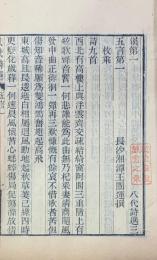 漢第一
八代詩選三
五言第一
長沙湘潭王闓運撰
枚乘
詩九首
西北有高樓上與浮雲齊交疏結綺窗阿閣三重階上有
絃歌聲音響一何悲誰能為此曲無乃杞梁妻清商隨風
發中曲正徘徊一彈再三歎慷慨有餘哀不惜歌者苦但
傷知音稀願為雙鴻鵠奮翅起高飛
東城高且長逶迤自相屬迴風動地起秋草萋已綠四時
更變化歲暮一何速晨風懷苦心蟋蟀傷局促蕩滌放情